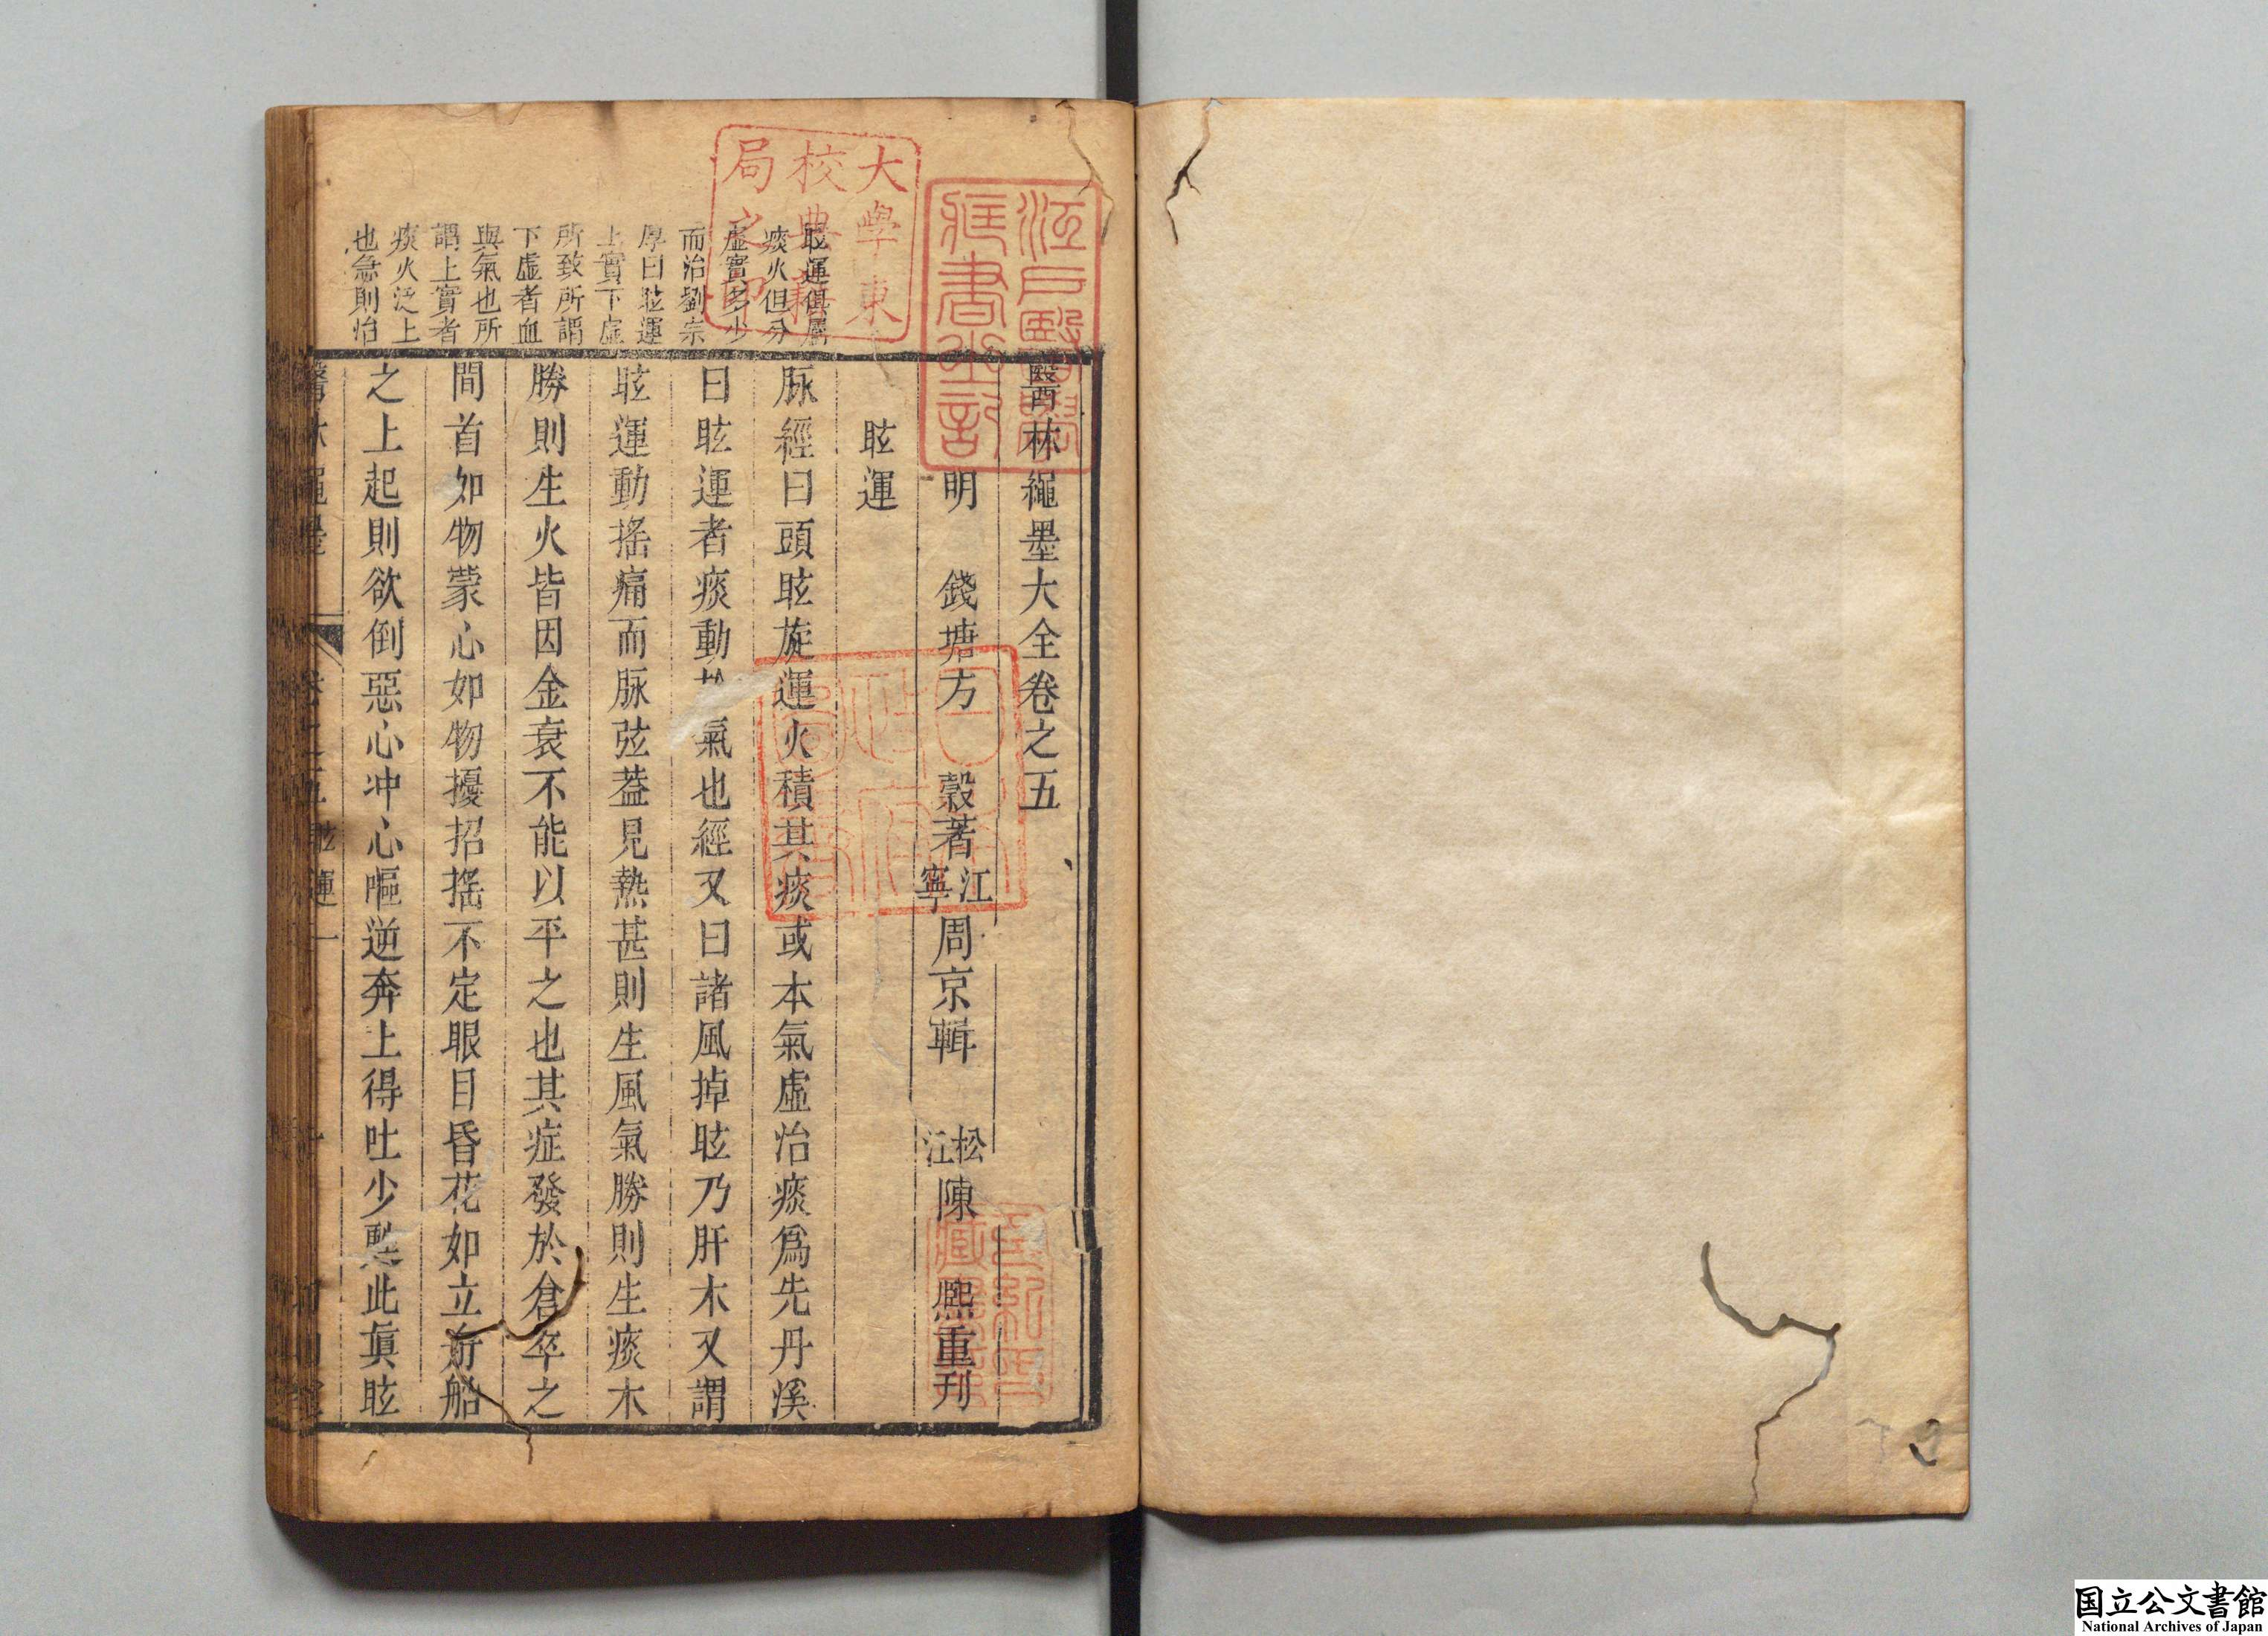 醫林繩墨大全卷之五
明　錢塘方　穀著　江寧周京輯　松江陳　熙重刊
眩運
脉經曰頭眩旋運火積其痰或本氣虛治痰爲先丹溪
曰眩運者痰動　氣也經又曰諸風掉眩乃肝木又謂
眩運動搖痛而脉弦葢見熱甚則生風氣勝則生痰木
勝則生火皆因金衰不能以平之也其症發於倉卒之
間首如物蒙心如物擾招搖不定眼目昏花如立舟船
之上起則欲倒惡心冲心嘔逆奔上得吐少甦此眞眩
眩運俱屬
痰火但分
虛實多少
而治劉宗
厚曰眩運
上實下虛
所致所謂
下虛者血
與氣也所
謂上實者
痰火泛上
也急則治
醫林繩墨　卷之五眩運　一
大學東
校典籍
局之印
江戶醫學
藏書之記
日本
政府
圖書
国立公文書館
National Archives of Japan